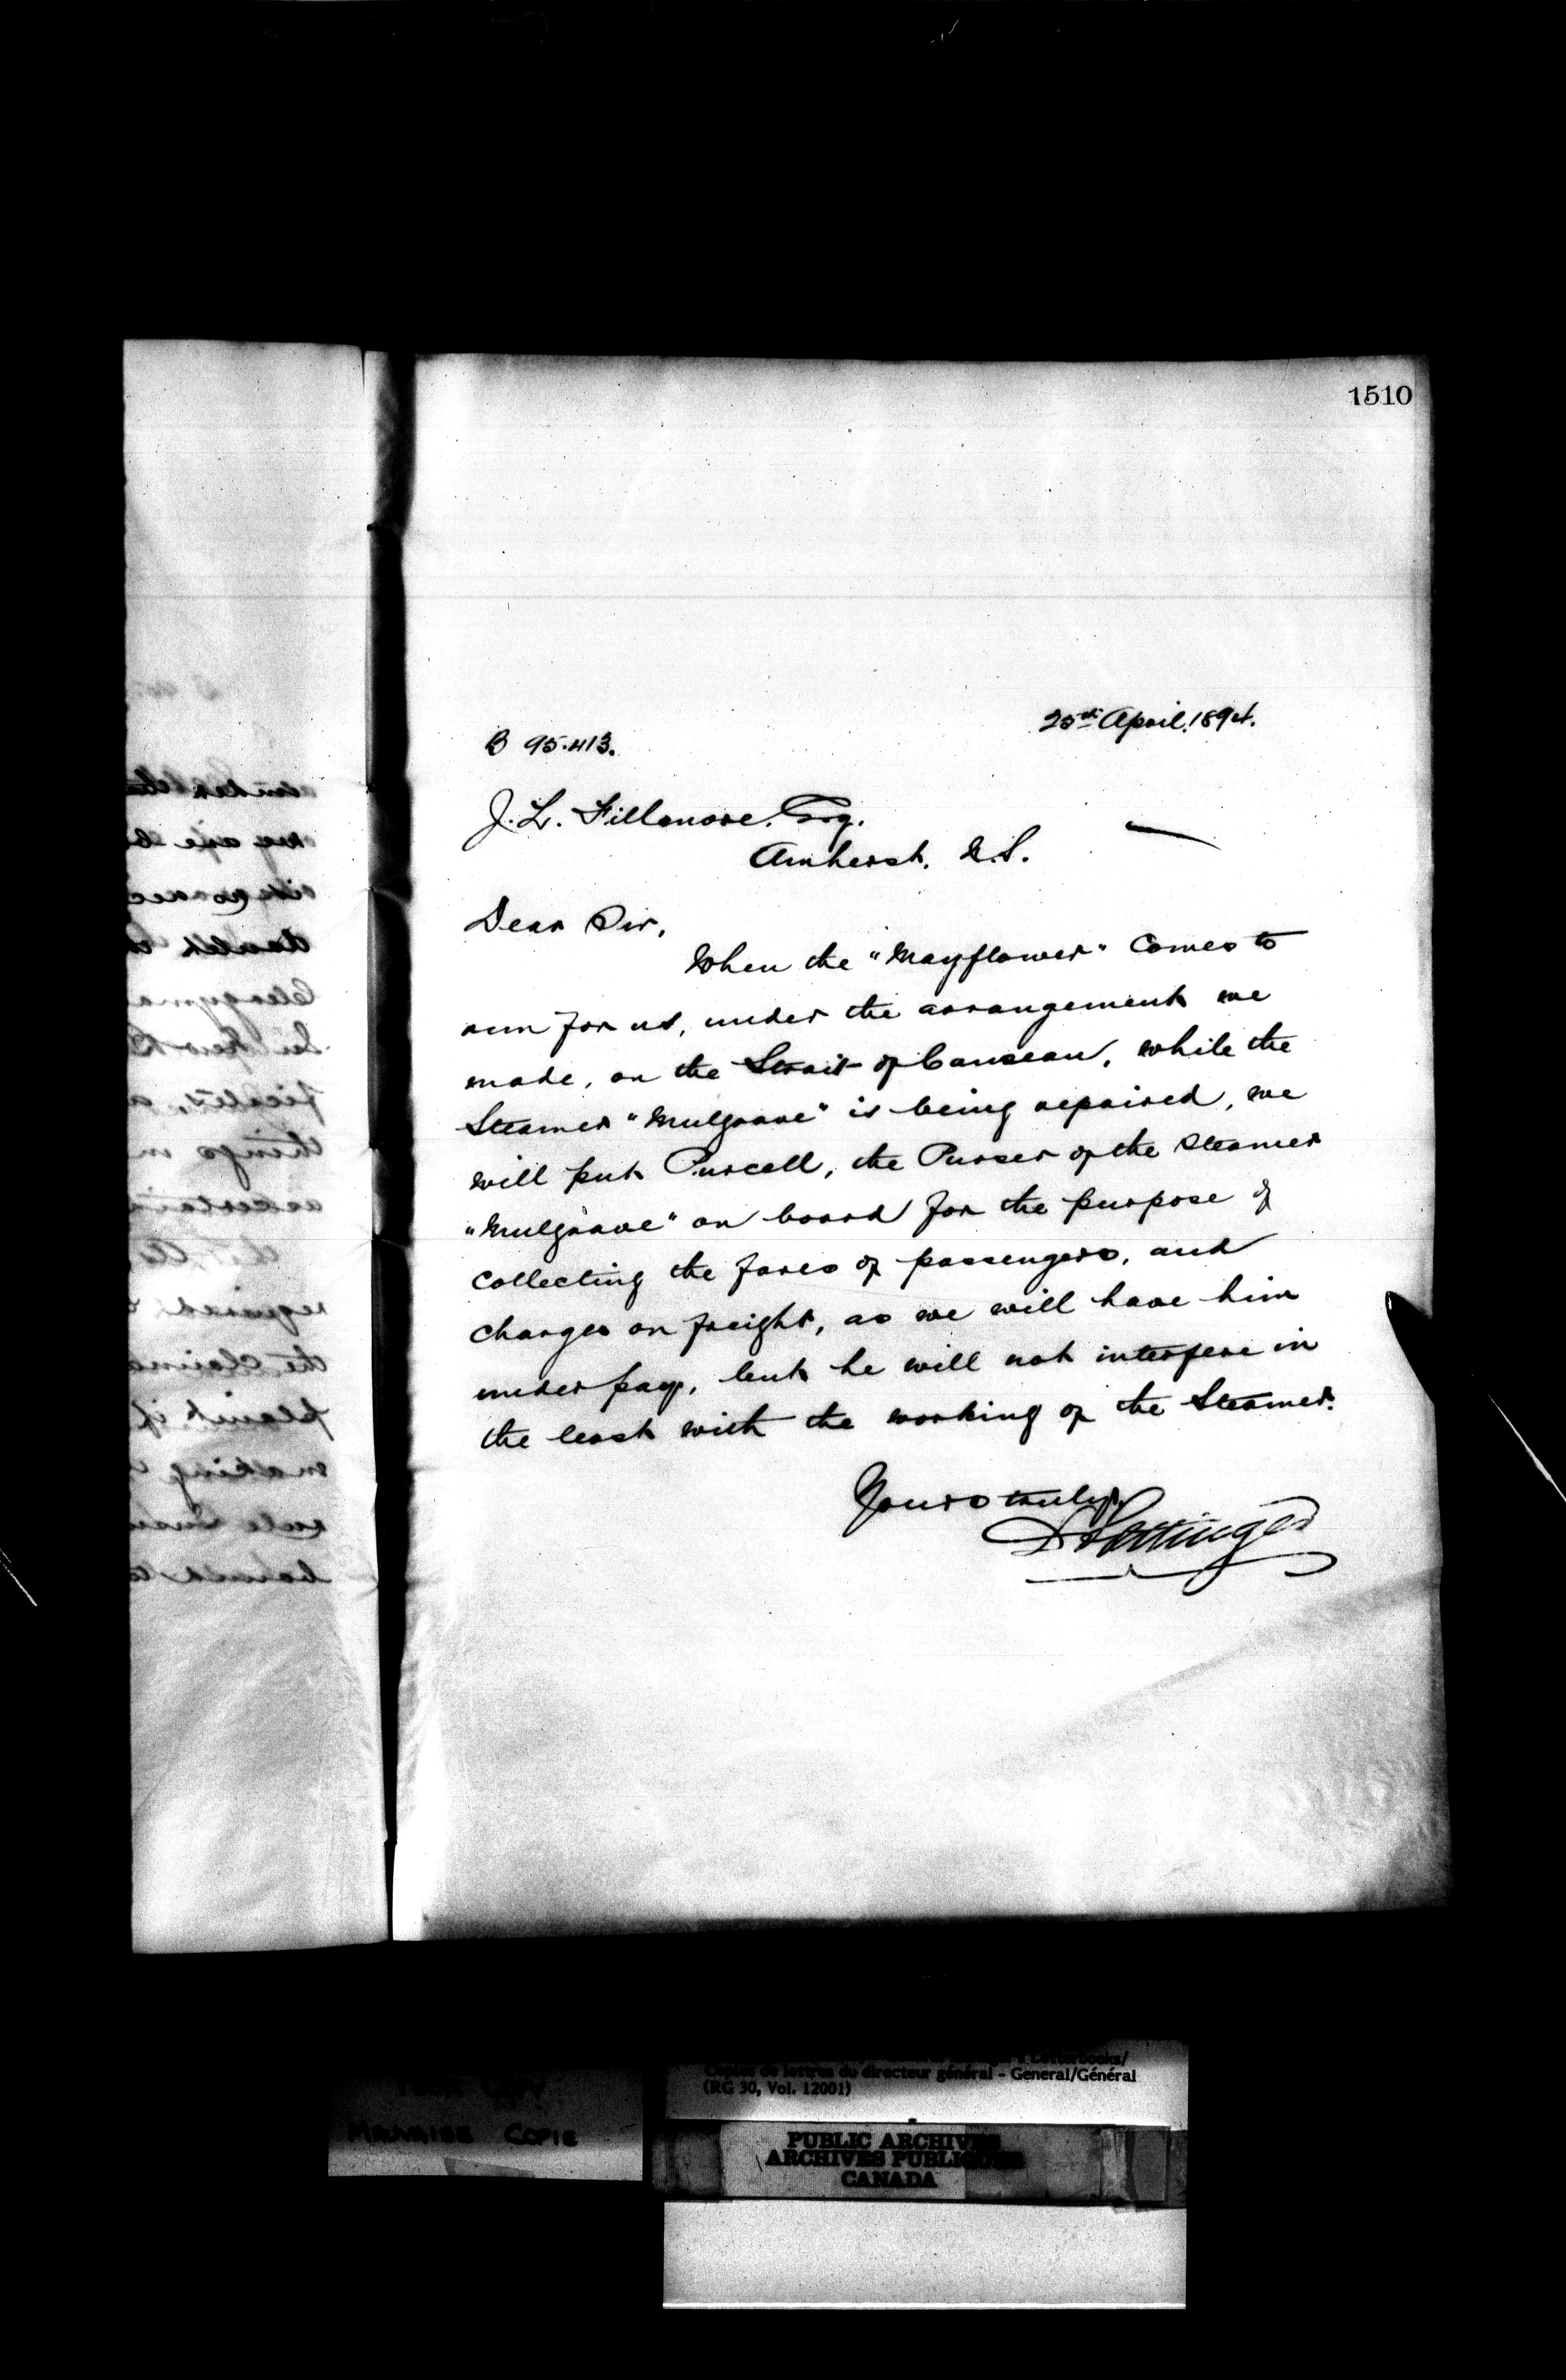 1510
25th April, 1894.
B 95.413.
J. L. Fillmore. Esq.
Amherst. N.S.
Dear Sir,
When the "Mayflower" comes to
run for us, under the arrangement we
made, on the Strait of Canseau, while the
Steamer "Mulgrave" is being repaired, we
will put Purcell, the Purser of the Steamer
"Mulgrave" on board for the purpose of
collecting the fares of passengers, and
charges on freight, as we will have him
under pay, but he will not interfere in
the least with the working of the Steamer.
Yours truly,
D Pottinger
MAUVAISE COPIE
Copies de lettres du directeur général - General/Général
(RG 30, Vol. 12001)
PUBLIC ARCHIVES
ARCHIVES PUBLIQUES
CANADA